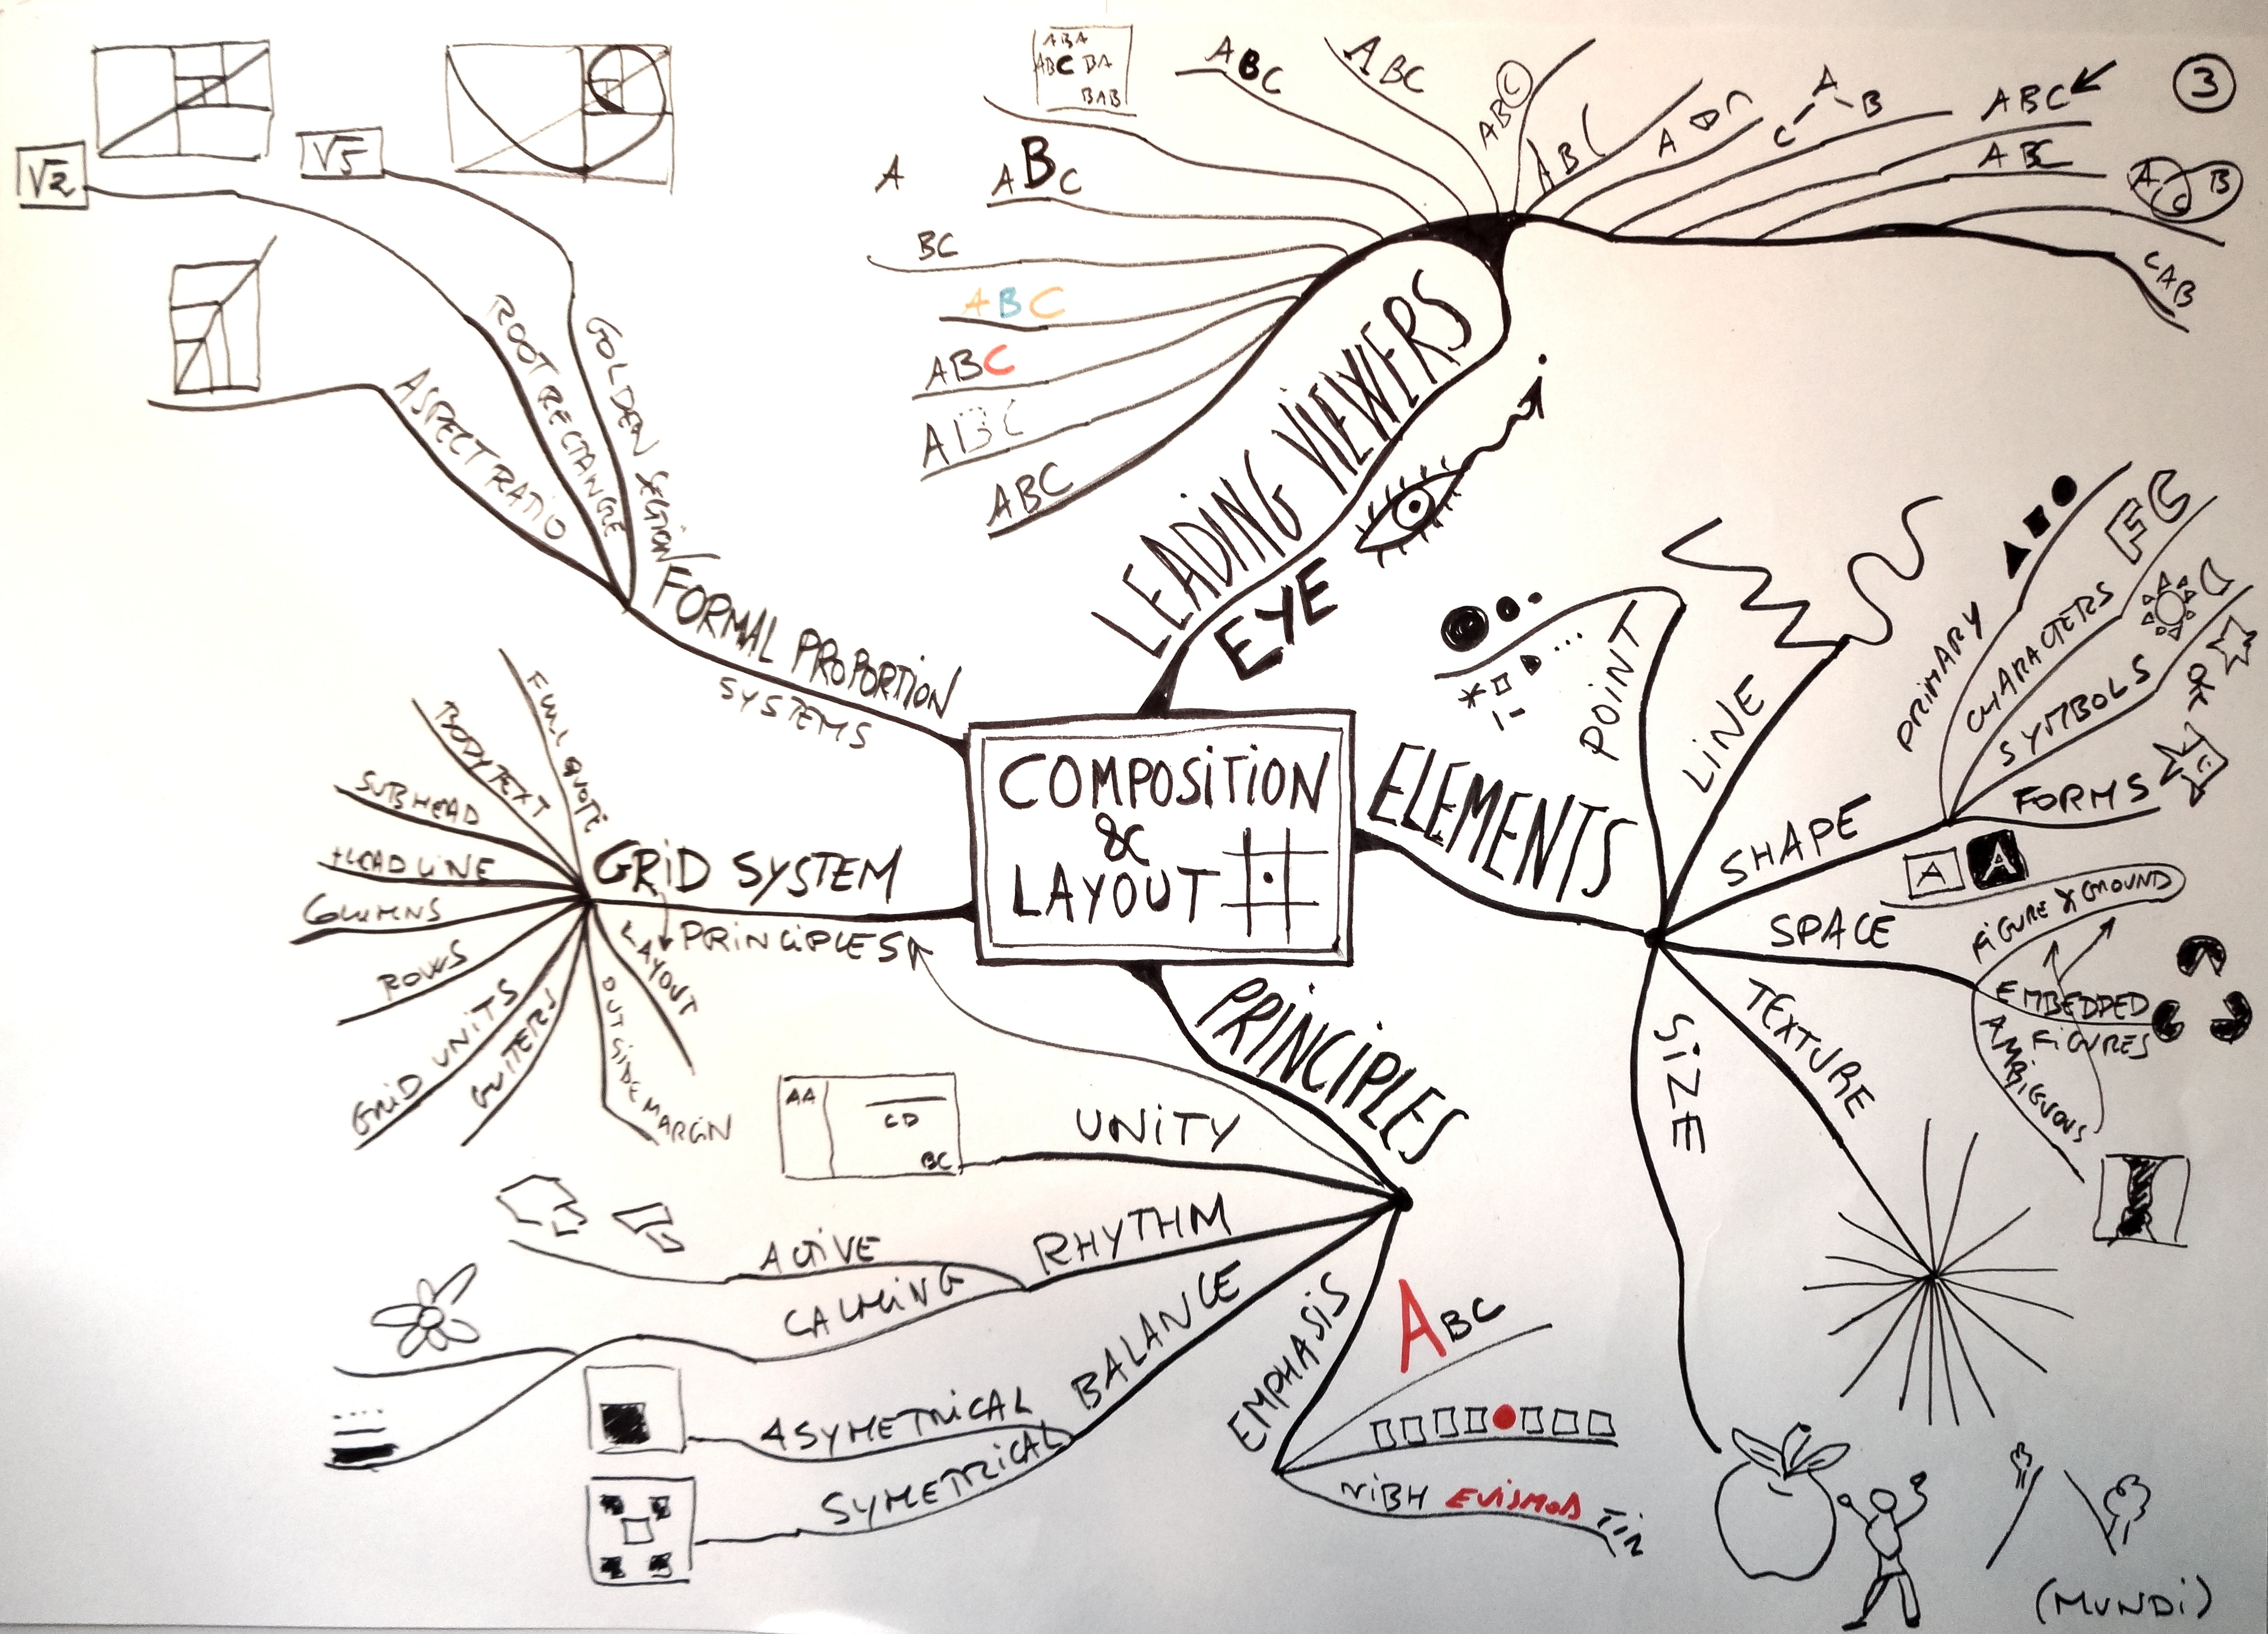 COMPOSITION
&
LAYOUT
LEADING VIEWERS
EYE
ABA
ABC BA
BAB
ABC
ABC
ABC
ABC
A
ABC
A
B
C
ABC
ABC
A
B
C
CAB
3
A
ABC
BC
ABC
ABC
ABC
ABC
ELEMENTS
POINT
LINE
SHAPE
PRIMARY
CHARACTERS
FG
SYMBOLS
FORMS
SPACE
A
A
FIGURE & GROUND
EMBEDDED
FIGURES
AMBIGUOUS
TEXTURE
SIZE
(MUNDI)
PRINCIPLES
UNITY
AA
CD
BC
RHYTHM
ACTIVE
CALMING
BALANCE
ASYMETRICAL
SYMETRICAL
EMPHASIS
ABC
NIBH EUISMOD TIN
GRID SYSTEM
PRINCIPLES
BODYTEXT
SUBHEAD
HEADLINE
COLUMNS
ROWS
GRID UNITS
GUTTERS
OUTSIDE MARGIN
LAYOUT
FORMAL PROPORTION
SYSTEMS
GOLDEN SECTION
√5
ROOT RECTANGLE
√2
ASPECT RATIO